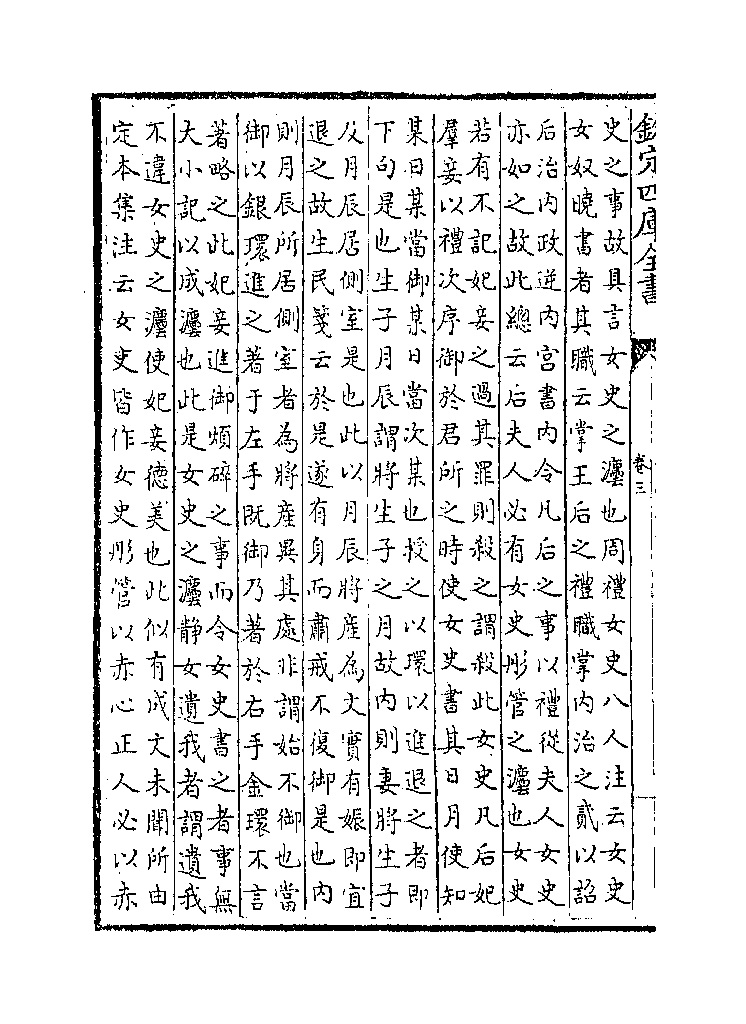 欽定四庫全書
卷三
史之事故具言女史之灋也周禮女史八人注云女史
女奴曉書者其職云掌王后之禮職掌内治之貳以詔
后治内政逆内宫書内令凡后之事以禮從夫人女史
亦如之故此總云后夫人必有女史彤管之灋也女史
若有不記妃妾之過其罪則殺之謂殺此女史凡后妃
羣妾以禮次序御於君所之時使女史書其日月使知
某日某當御某日當次某也授之以環以進退之者即
下句是也生子月辰謂將生子之月故内則妻將生子
及月辰居側室是也此以月辰將産為文實有娠即宜
退之故生民箋云於是遂有身而肅戒不復御是也内
則月辰所居側室者為將産異其處非謂始不御也當
御以銀環進之著于左手既御乃著於右手金環不言
著略之此妃妾進御煩碎之事而令女史書之者事無
大小記以成灋也此是女史之灋静女遺我者謂遺我
不違女史之灋使妃妾徳美也此似有成文未聞所由
定本集注云女史皆作女史彤管以赤心正人必以赤